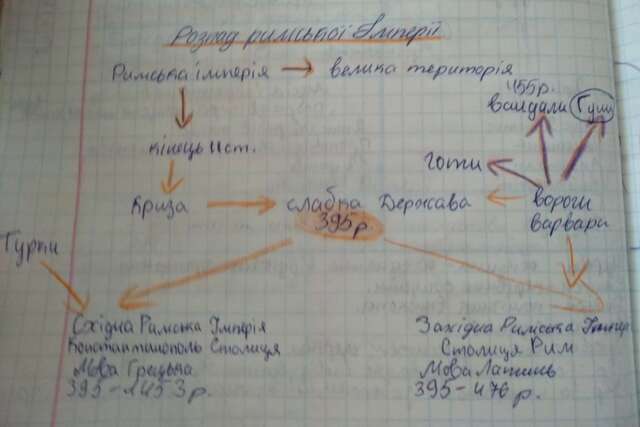 Розпад римської Імперії
Римська імперія → велика територія
455р.
вандали Гуни
кінець IIст.
готи
Криза → слабка Держава ← вороги
395р. варвари
Турки
Східна Римська Імперія
Константинополь Столиця
Мова Грецька
395-1453р.
Західна Римська Імпер
Столиця Рим
Мова Латинь
395-476р.